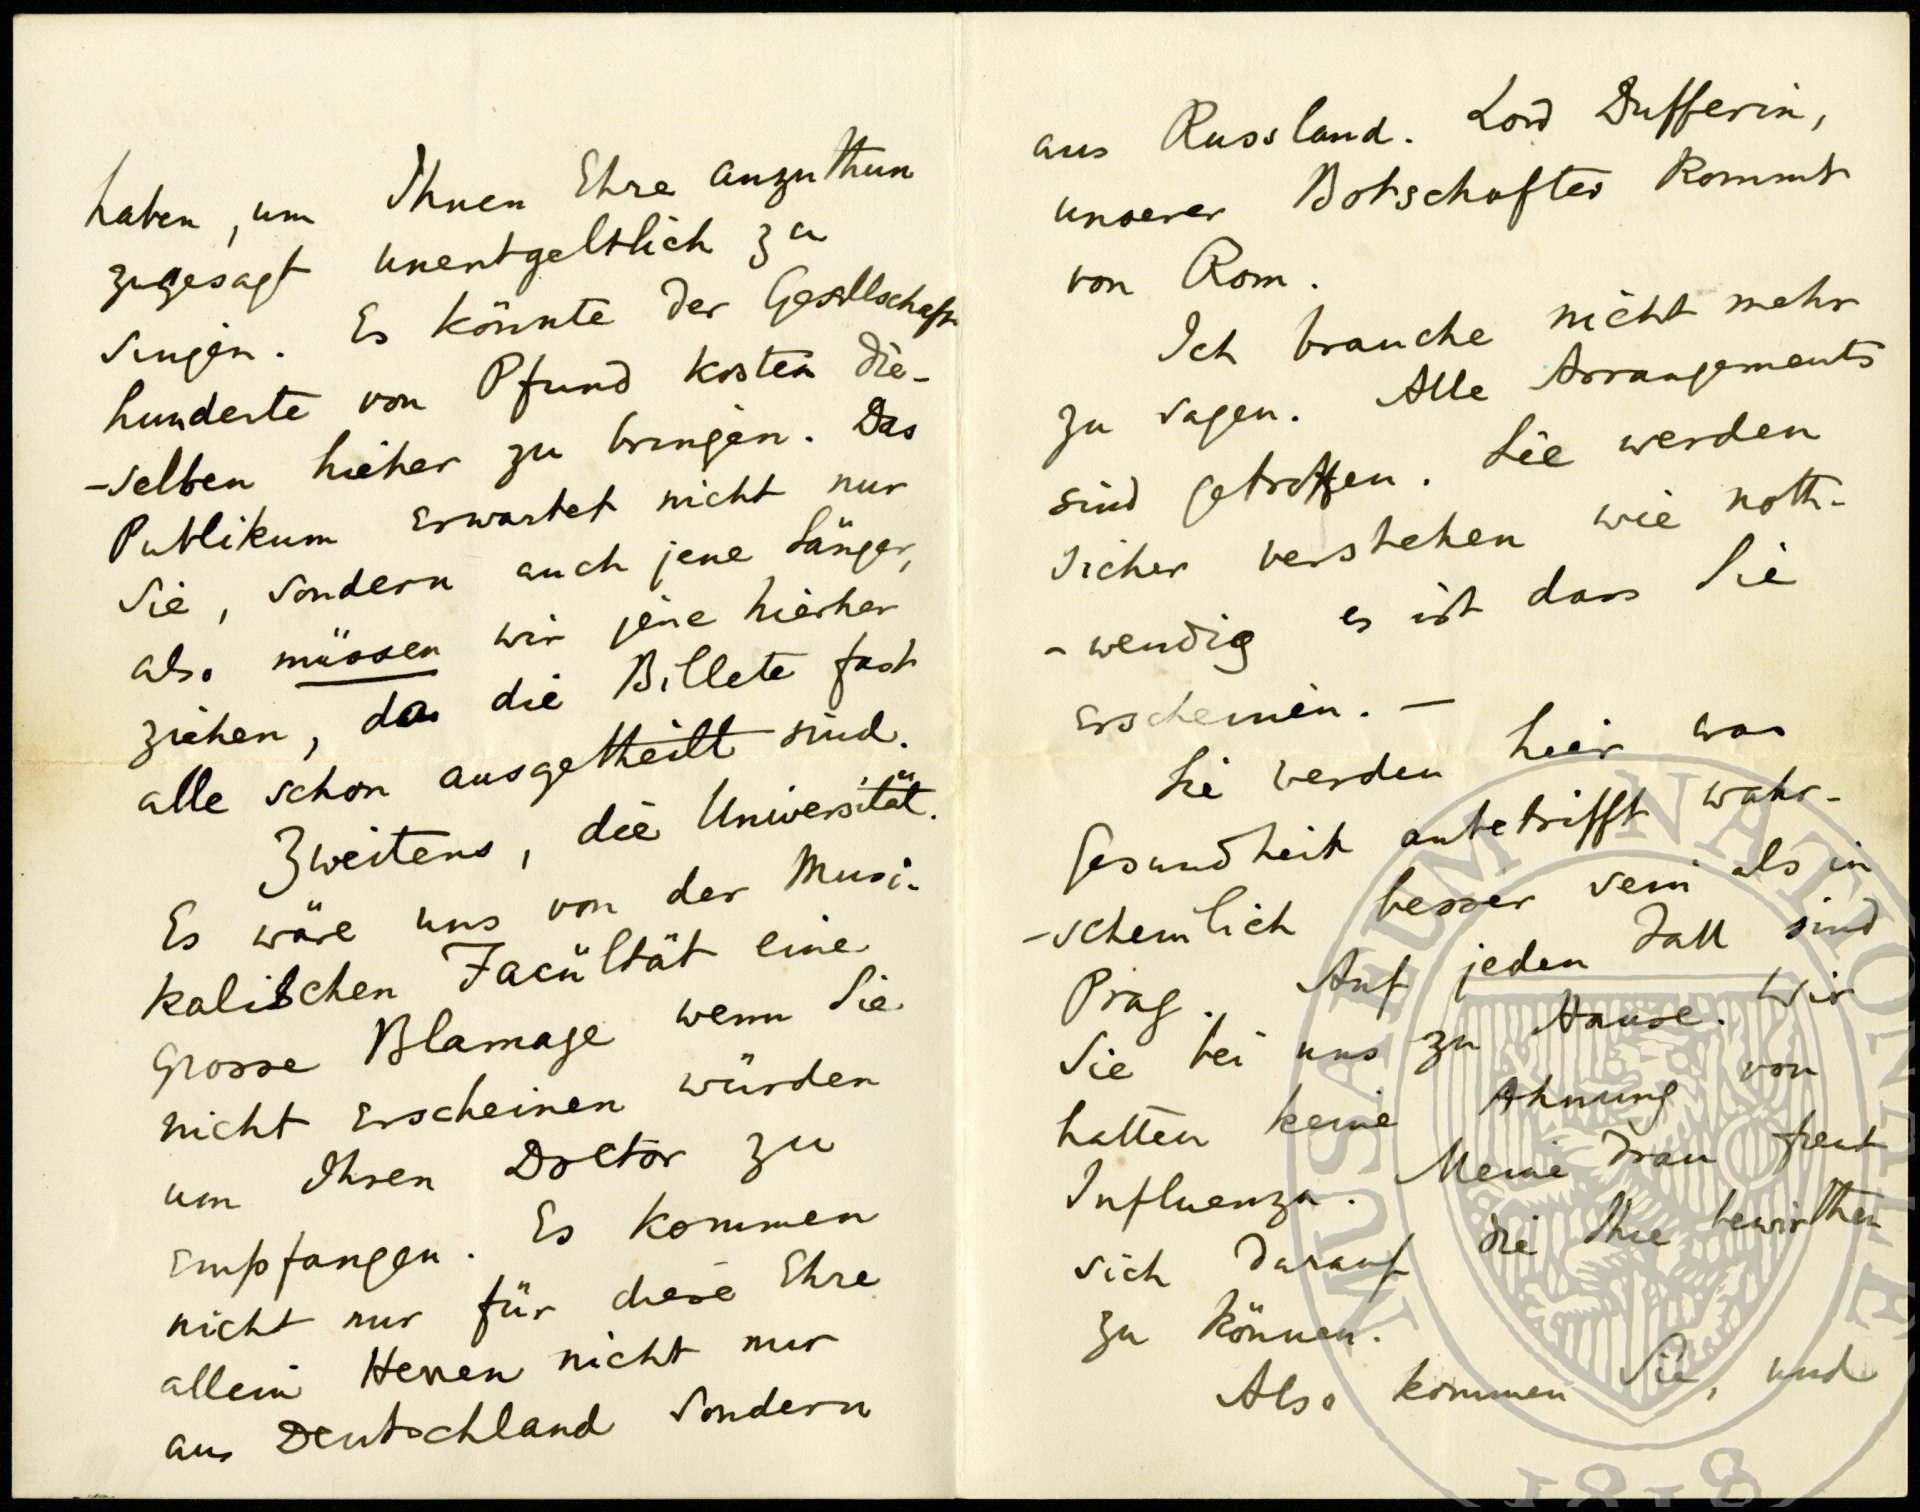 haben, um Ihnen Ehre anzuthun
zugesagt unentgeltlich zu
singen. Es könnte der Gesellschaft
hunderte von Pfund kosten die-
-selben hieher zu bringen. Das
Publikum erwartet nicht nur
Sie, sondern auch jene Sänger,
also müssen wir jene hierher
ziehen, da die Billete fast
alle schon ausgetheilt sind.
Zweitens, die Universität.
Es wäre uns von der Musi-
kalischen Facültät eine
grosse Blamage wenn Sie
nicht erscheinen würden
um Ihren Doctor zu
empfangen. Es kommen
nicht nur für diese Ehre
allein Herren nicht nur
aus Deutschland sondern
aus Russland. Lord Dufferin,
unserer Botschafter kommt
von Rom.
Ich brauche nicht mehr
zu sagen. Alle Arrangements
sind getroffen. Sie werden
sicher verstehen wie noth-
-wendig es ist dass Sie
erscheinen. —
Sie werden hier was
Gesundheit anbetrifft wahr-
-scheinlich besser sein als in
Prag. Auf jeden Fall sind
Sie bei uns zu Hause. Wir
hatten keine Ahnung von
Influenza. Meine Frau freut
sich darauf die Ihre bewirthen
zu können.
Also kommen Sie, und
MUSAEUM NATIONALE
1818